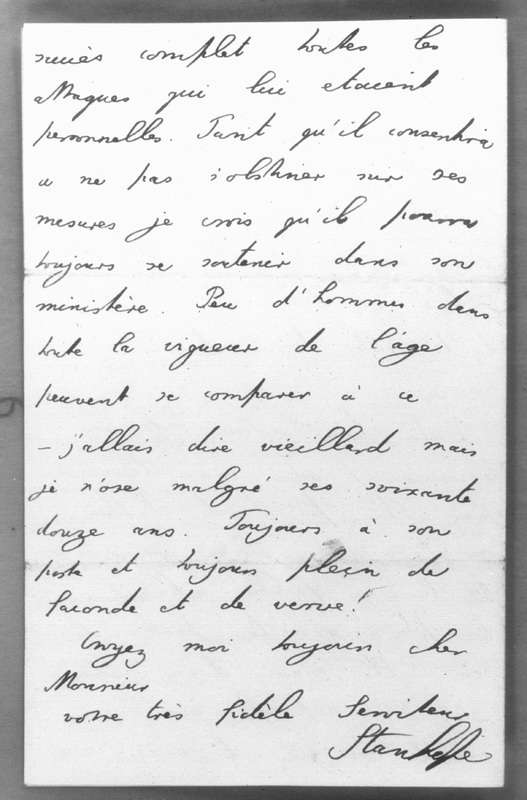 succès complet toutes les
attaques qui lui etaient
personnelles. Tant qu'il consentira
a ne pas s'obstiner sur ses
mesures je crois qu'il pourra
toujours se soutenir dans son
ministère. Peu d'hommes dans
toute la vigueur de l'âge
peuvent se comparer à ce
– j'allais dire vieillard mais
je n'ose malgré ses soixante
douze ans. Toujours à son
poste et toujours plein de
faconde et de verve!
Croyez moi toujours cher
Monsieur
votre très fidèle Serviteur
Stanhope